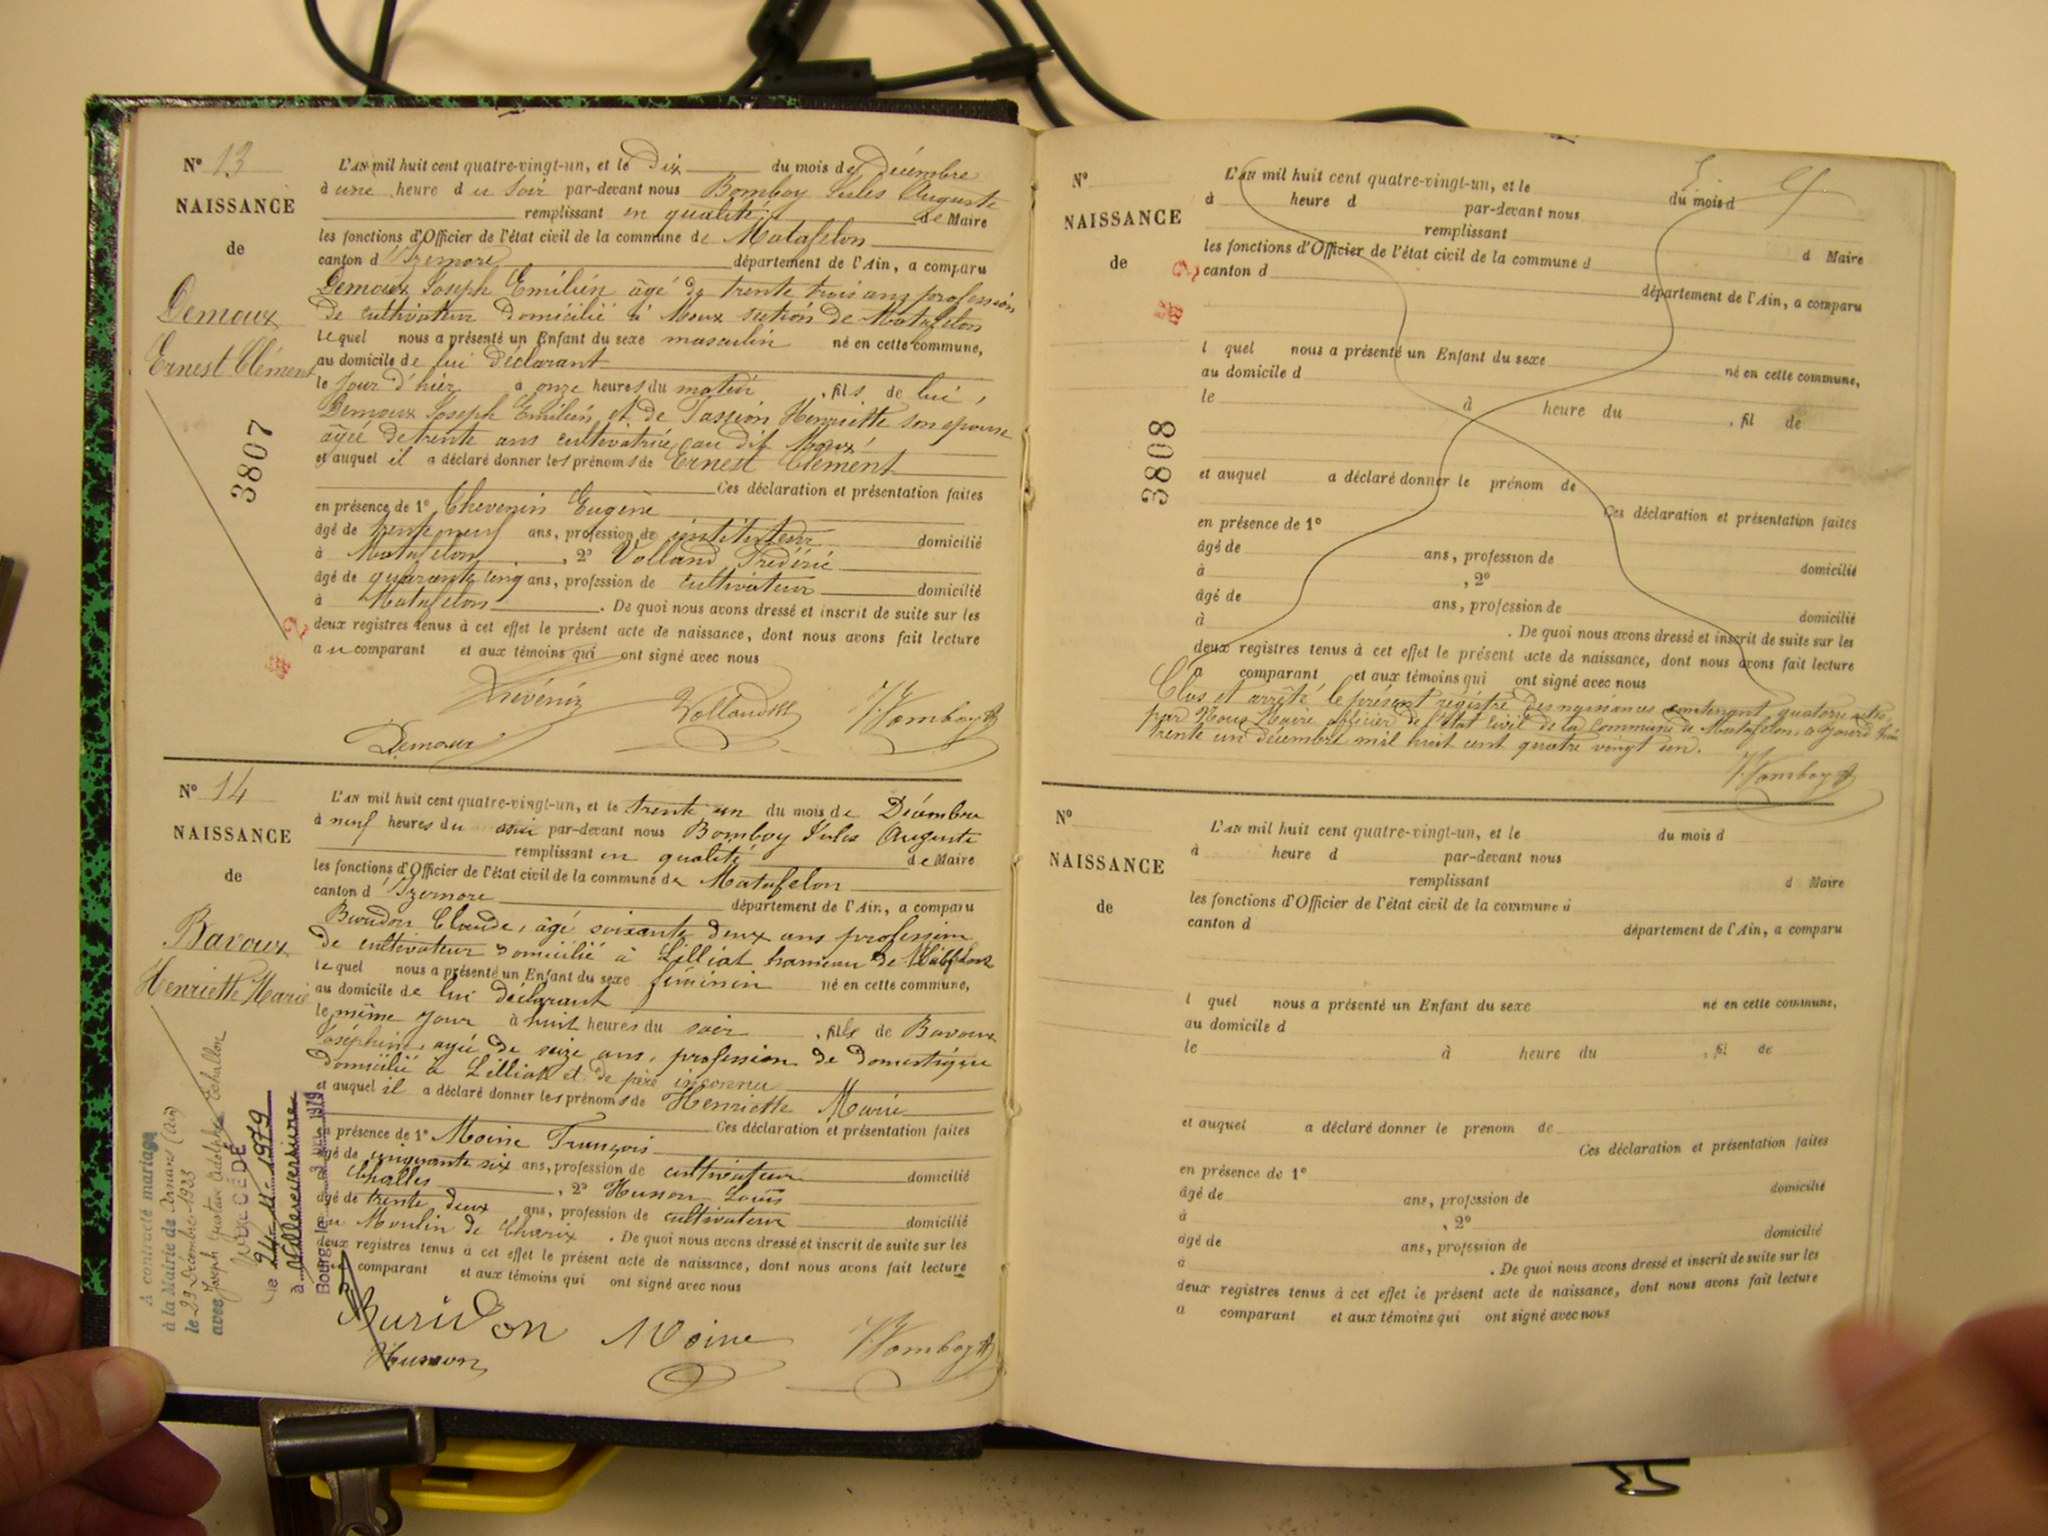 N° 13
NAISSANCE
de
Demoux
Ernest Clément
3807
L'AN mil huit cent quatre-vingt-un, et le Dix du mois de Décembre
à une heure du soir par-devant nous Bomboy Jules Auguste
remplissant en qualité de Maire
les fonctions d'Officier de l'état civil de la commune de Matafelon
canton d'Izernore département de l'Ain, a comparu
Demoux Joseph Emilién âgé de trente trois ans profession
de cultivateur domicilié à Moux section de Matafelon
lequel nous a présenté un Enfant du sexe masculin né en cette commune,
au domicile de lui déclarant
le jour d'hier à onze heures du matin, fils de lui,
Demoux Joseph Emilién et de Tassion Henriette son epouse
âgée de trente ans cultivatrice au dit Moux
et auquel il a déclaré donner les prénoms de Ernest Clément
Ces déclaration et présentation faites
en présence de 1° Chevenin Eugène
âgé de trente neuf ans, profession de instituteur domicilié
à Matafelon, 2° Volland Frédéric
âgé de quarante cinq ans, profession de cultivateur domicilié
à Matafelon. De quoi nous avons dressé et inscrit de suite sur les
deux registres tenus à cet effet le présent acte de naissance, dont nous avons fait lecture
au comparant et aux témoins qui ont signé avec nous
Volland
J. Bomboy
Demoux
N° 14
NAISSANCE
de
Bavoux
Henriette Marie
L'AN mil huit cent quatre-vingt-un, et le trente un du mois de Décembre
à neuf heures du soir par-devant nous Bomboy Jules Auguste
remplissant en qualité de Maire
les fonctions d'Officier de l'état civil de la commune de Matafelon
canton d'Izernore département de l'Ain, a comparu
Buridon Claude, âgé soixante deux ans profession
de cultivateur domicilié à Lilliat hameau de Matafelon
lequel nous a présenté un Enfant du sexe féminin né en cette commune,
au domicile de lui déclarant
le même jour à huit heures du soir, fille de Bavoux
Joséphine, agée de seize ans, profession de domestique
domicilié à Lilliat et de père inconnu
et auquel il a déclaré donner les prénoms de Henriette Marie
Ces déclaration et présentation faites
en présence de 1° Moine François
âgé de cinquante six ans, profession de cultivateur domicilié
à Challes, 2° Husson Louis
âgé de trente deux ans, profession de cultivateur domicilié
au Moulin de Charix. De quoi nous avons dressé et inscrit de suite sur les
deux registres tenus à cet effet le présent acte de naissance, dont nous avons fait lecture
comparant et aux témoins qui ont signé avec nous
Buridon Moine J. Bomboy
Husson
A contracté mariage
à la Mairie de Dortans (Ain)
le 23 Décembre 1933
avec Joseph Gustave Adolphe Echallon
DÉCÉDÉ
le 24-11-1979
à Villereversure
Bourg, le 1979
N°
NAISSANCE
de
3808
L'AN mil huit cent quatre-vingt-un, et le du mois d
à heure d par-devant nous
remplissant d Maire
les fonctions d'Officier de l'état civil de la commune d
canton d département de l'Ain, a comparu
l quel nous a présenté un Enfant du sexe né en cette commune,
au domicile d
le à heure du, fil de
et auquel a déclaré donner le prénom de
Ces déclaration et présentation faites
en présence de 1°
âgé de ans, profession de domicilié
à, 2°
âgé de ans, profession de domicilié
à. De quoi nous avons dressé et inscrit de suite sur les
deux registres tenus à cet effet le présent acte de naissance, dont nous avons fait lecture
comparant et aux témoins qui ont signé avec nous
Clos et arrêté le présent registre des naissances contenant quatorze actes
par Nous Maire officier de l'état civil de la commune de Matafelon, aujourd'hui
trente un décembre mil huit cent quatre vingt un.
J. Bomboy
N°
NAISSANCE
de
L'AN mil huit cent quatre-vingt-un, et le du mois d
à heure d par-devant nous
remplissant d Maire
les fonctions d'Officier de l'état civil de la commune d
canton d département de l'Ain, a comparu
l quel nous a présenté un Enfant du sexe né en cette commune,
au domicile d
le à heure du, fil de
et auquel a déclaré donner le prenom de
Ces déclaration et présentation faites
en présence de 1°
âgé de ans, profession de domicilié
à, 2°
âgé de ans, profession de domicilié
à. De quoi nous avons dressé et inscrit de suite sur les
deux registres tenus à cet effet le présent acte de naissance, dont nous avons fait lecture
a comparant et aux témoins qui ont signé avec nous